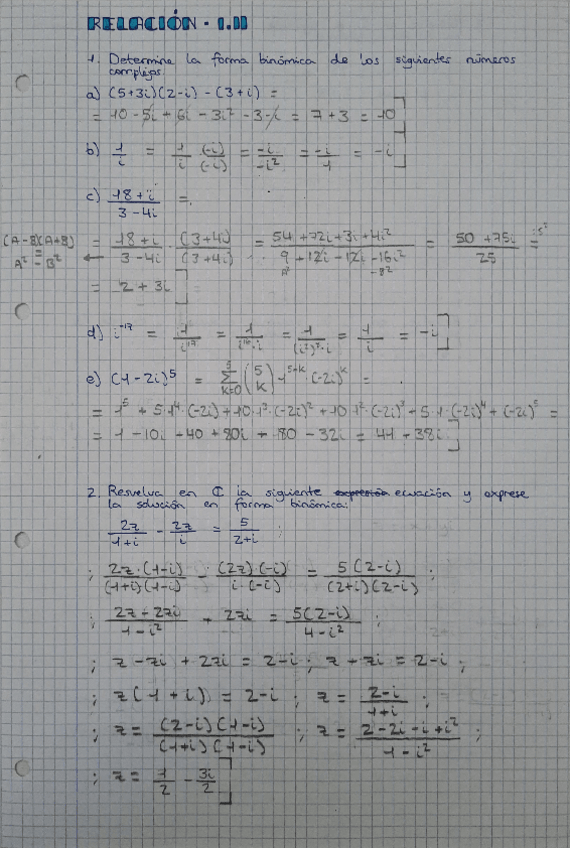 RELACIÓN - 1.II
1. Determina la forma binómica de los siguientes números
complejos.
a) (5+3i)(2-i) - (3+i) =
= 10 - 5i + 6i - 3i² - 3 - i = 7 + 3 = 10
b) 1/i = 1/i · (-i)/(-i) = -i/-i² = -i/1 = -i
c) (18+i)/(3-4i) =
(A-B)(A+B) = A² - B² ← = (18+i)/(3-4i) · (3+4i)/(3+4i) = (54+72i+3i+4i²)/(9+12i-12i-16i²) = (50+75i)/25 =
A² -B² :5²
= 2 + 3i
d) i⁻¹⁷ = 1/i¹⁷ = 1/(i¹⁶·i) = 1/((i²)⁸·i) = 1/i = -i
e) (1-2i)⁵ = Σ k=0 5 (5 k) 1⁵⁻ᵏ (-2i)ᵏ =
= 1⁵ + 5·1⁴·(-2i) + 10·1³·(-2i)² + 10·1²·(-2i)³ + 5·1·(-2i)⁴ + (-2i)⁵ =
= 1 - 10i - 40 + 80i + 80 - 32i = 41 + 38i
2. Resuelva en ℂ la siguiente ecuación y exprese
la solución en forma binómica:
2z/(1+i) - 2z/i = 5/(2+i) ;
; 2z·(1-i)/((1+i)(1-i)) - (2z)(-i)/(i·(-i)) = 5(2-i)/((2+i)(2-i)) ;
; (2z-2zi)/(1-i²) + 2zi = 5(2-i)/(4-i²) ;
; z - zi + 2zi = 2-i ; z + zi = 2-i ;
; z(1+i) = 2-i ; z = (2-i)/(1+i) ;
; z = (2-i)(1-i)/((1+i)(1-i)) ; z = (2-2i-i+i²)/(1-i²) ;
; z = 1/2 - 3i/2